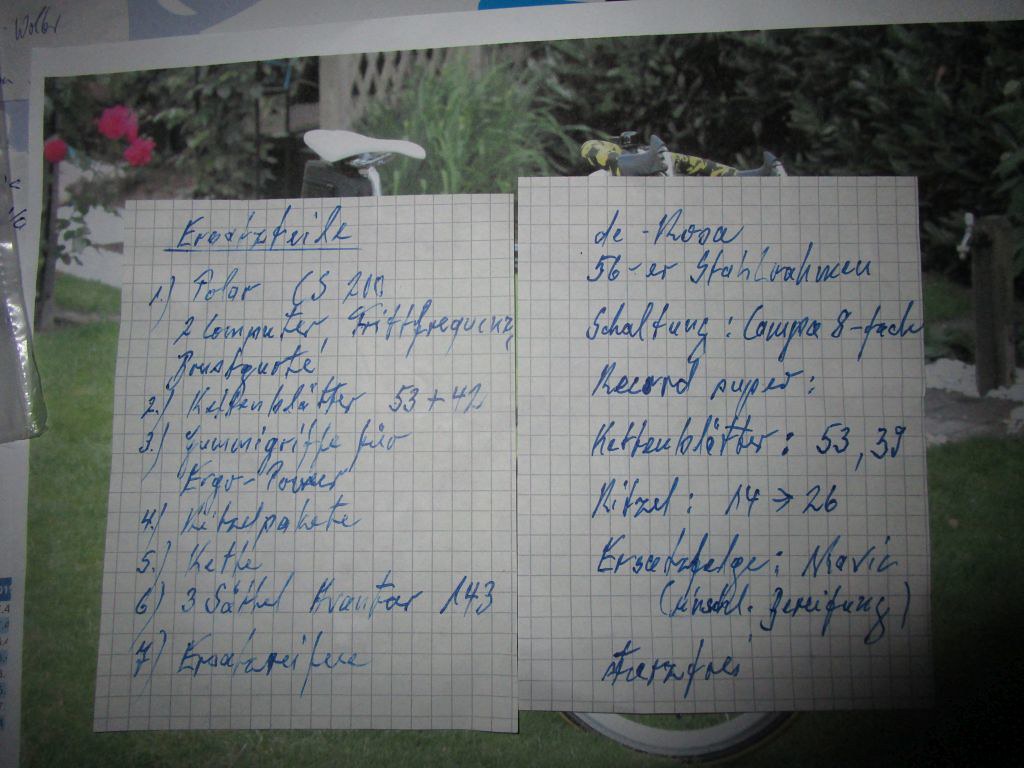 Wolber
Ersatzteile
1.) Polar CS 200
2 Computer, Trittfrequenz,
Brustgurte
2.) Kettenblätter 53 + 42
3.) Gummigriffe für
Ergo-Power
4.) Ritzelpakete
5.) Kette
6) 3 Sättel 143
7) Ersatzreifen
de-Rosa
56-er Stahlrahmen
Schaltung: Campa 8-fach
Record super:
Kettenblätter: 53, 39
Ritzel: 14 → 26
Ersatzfelge: Mavic
(einschl. Bereifung)